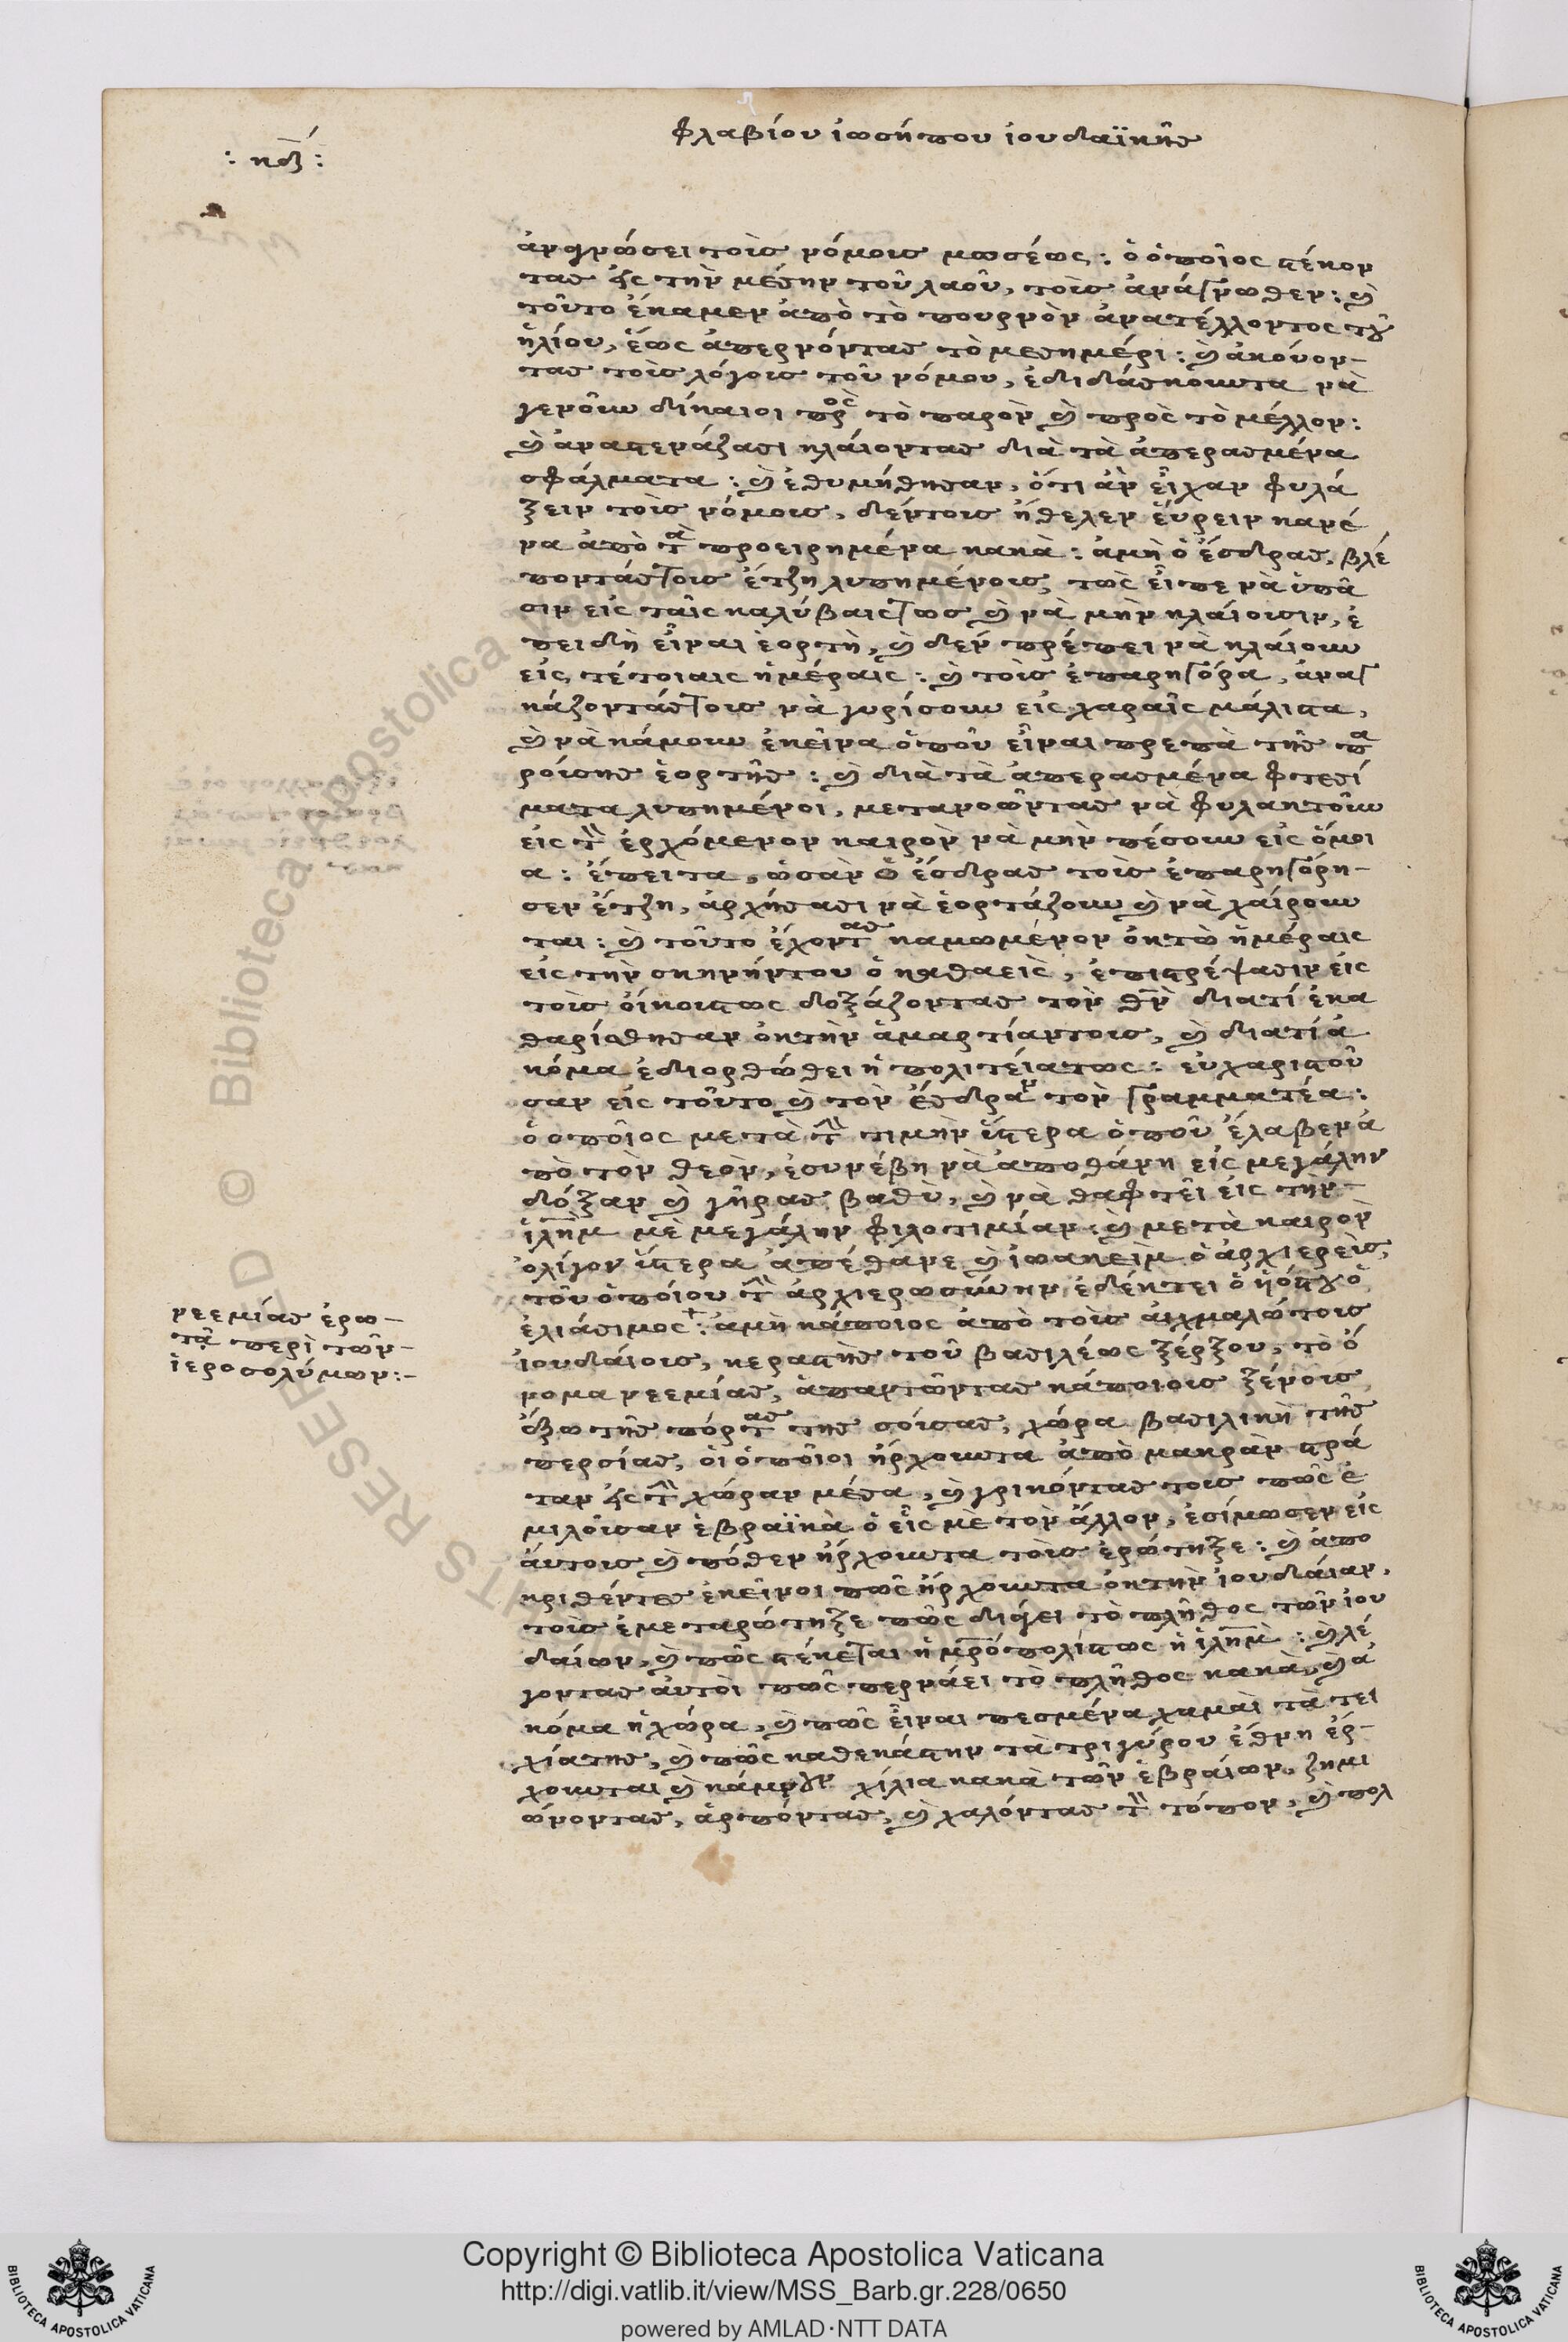 φλαβίου ἰωσήπου ἰουδαϊκῆς
ἀναγνώσει τοὶς νόμους μωσέως: ὁ ὁποῖος στέκον
τας εἰς τὴν μέσην τοῦ λαοῦ, τοὶς ἀνάγνωθεν: καὶ
τοῦτο ἔκαμεν ἀπὸ τὸ πουρνὸν ἀνατέλλοντος τοῦ
ἡλίου, ἕως ἀπερνόντας τὸ μεσημέρι: καὶ ἀκούον-
τας τοὶς λόγους τοῦ νόμου, ἐδιδάσκουντα νὰ
γενοῦν δίκαιοι πρὸς τὸ παρὸν καὶ πρὸς τὸ μέλλον:
καὶ ἀναστενάζασι κλάιοντας διὰ τὰ ἀπερασμένα
σφάλματα: καὶ ἐθυμήθησαν, ὅτι ἂν εἶχαν φυλά
ξειν τοὶς νόμους, δέντους ἤθελεν εὕρειν κανέ
να ἀπὸ τὰ προειρημένα κακὰ: ἀμὴ ὁ ἔσδρας, βλέ
ποντάς τους ἔτζη λυπημένους, τῶς εἶπε νὰ ὑπᾶ
σιν εἰς ταῖς καλύβαις τως καὶ νὰ μὴν κλάιουσιν, ἐ
πειδὴ εἶναι ἑορτὴ, καὶ δεν πρέπει νὰ κλάιουν
εἰς τέτοιαις ἡμέραις: καὶ τοὶς ἐπαρηγόρα, ἀναγ
κάζοντάς τους νὰ γυρίσουν εἰς χαραῖς μάλιστα,
καὶ νὰ κάμουν ἐκεῖνα ὁποῦ εἶναι πρεπὰ τῆς πα
ρούσης ἑορτῆς: καὶ διὰ τὰ ἀπερασμένα φτεσί
ματα λυπημένοι, μετανοῶντας νὰ φυλακτοῦν
εἰς τὸν ἐρχόμενον καιρὸν νὰ μὴν πέσουν εἰς ὅμοι
α: ἔπειτα, ὡσὰν ὁ ἔσδρας τοὶς ἐπαρηγόρη-
σεν ἔτζη, ἀρχήσασι νὰ ἑορτάζουν καὶ νὰ χαίρουν
ται: καὶ τοῦτο ἔχοντας καμωμένον ὀκτὼ ἡμέραις
εἰς τὴν σκηνήντου ὁ καθαεὶς, ἐπιστρέψασιν εἰς
τοὶς οἴκουςτως δοξάζοντας τὸν θν̅ διατί ἐκα
θαρίσθησαν ὀκτὴν ἁμαρτίαντους, καὶ διατί ἀ
κόμα ἐδιορθώθει ἡ πολιτείατως: εὐχαριστοῦ
σαν εἰς τοῦτο καὶ τὸν ἔσδραν τὸν γραμματέα:
ὁ οποῖος μετὰ τὴν τιμὴν ὕστερα ὁποῦ ἔλαβεν ἀ
πὸ τὸν θεὸν, ἐσυνέβη νὰ ἀποθάνη εἰς μεγάλην
δόξαν καὶ γῆρας βαθὺ, καὶ νὰ θαφτεῖ εἰς τὴν
ἱλημ̅ μὲ μεγάλην φιλοτιμίαν: καὶ μετὰ καιρὸν
ὀλίγον ὕστερα ἀπέθανε καὶ ἰωακεὶμ ὁ ἀρχιερεὺς,
τοῦ ὁποίου τὴν ἀρχιερωσύνην ἐδέκτει ὁ ὑιόςτου ὁ
ἐλιάσιμος: ἀμὴ κάποιος ἀπὸ τοὶς ἀιχμαλώτους
ἰουδαίους, κεραστὴς τοῦ βασιλέως ξέρξου, τὸ ὄ
νομα νεεμίας, ἀπαντῶντας κάποιους ξένους
ὄξω τῆς πόρτας της σούσας, χώρα βασιλικὴ τῆς
περσίας, οἱ ὁποῖοι ἤρχουντα ἀπὸ μακρὰν στρά
ταν εἰς τὴν χώραν μέσα, καὶ γρικόντας τους πῶς ἐ
μιλοῦσαν ἑβραϊκὰ ὁ εἷς μὲ τὸν ἄλλον, ἐσίμωσεν εἰς
ἀυτους καὶ πόθεν ἤρχουντα τοὶς ἐρώτηξε: καὶ ἀπο
κριθέντες ἐκεῖνοι πῶς ἤρχουντα ὀκτὴν ἰουδαίαν,
τοὶς ἐμεταρώτηξε πῶς διάγει τὸ πλῆθος τῶν ἰου
δαίων, καὶ πῶς στέκεται ἡ μρ̅όπολίςτως ἡ ἱλημ̅: καὶ λέ
γοντας ἀυτοὶ πῶς περνάει τὸ πλῆθος κακὰ, καὶ ἀ
κόμα ἡ χώρα, καὶ πῶς εἶναι πεσμένα χαμαὶ τὰ τει
χίατης, καὶ πῶς καθεκάστην τὰ τριγύρου ἔθνη ἔρ-
χουνται καὶ κάμνουν χίλια κακὰ τῶν ἑβραίων, ζημι
ώνοντας, ἁρπόντας, καὶ χαλόντας τὸν τόπον, καὶ πολ
νεεμίας ἐρω-
τᾷ περὶ τῶν-
ἱεροσολύμων:-
Copyright © Biblioteca Apostolica Vaticana
http://digi.vatlib.it/view/MSS_Barb.gr.228/0650
powered by AMLAD·NTT DATA
BIBLIOTECA APOSTOLICA VATICANA
BIBLIOTECA APOSTOLICA VATICANA